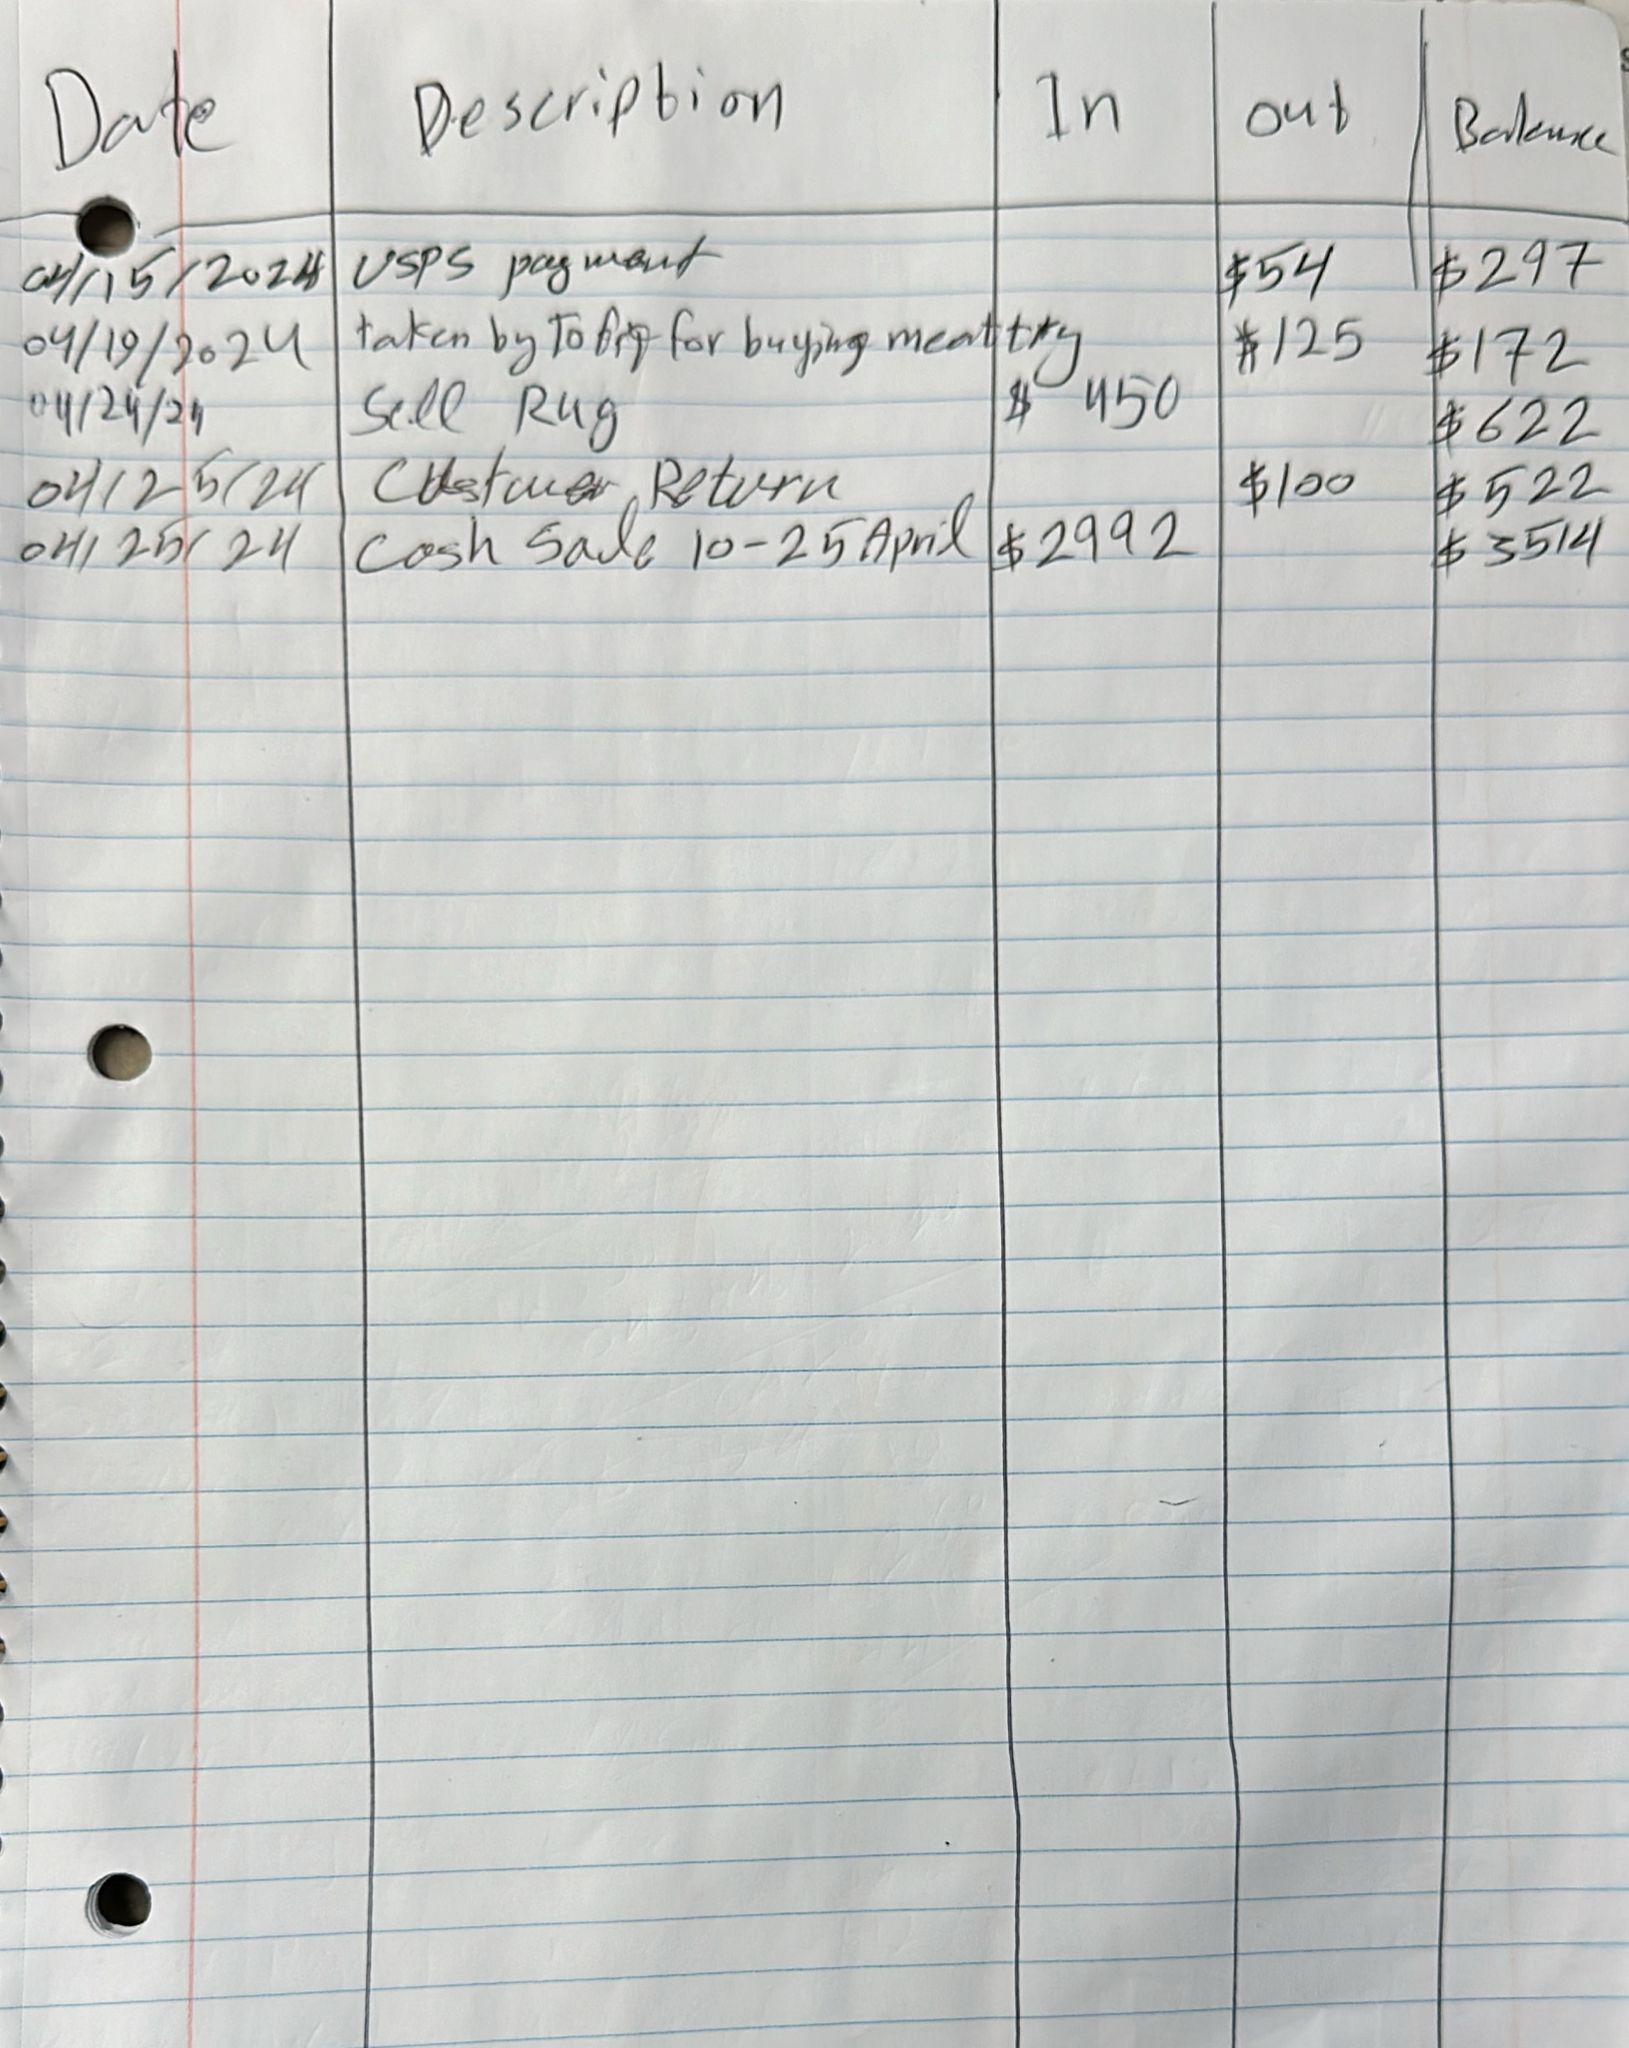 Date Description In out Balance
04/15/2024 USPS payment $54 $297
04/19/2024 taken by for buying meat $125 $172
04/24/24 Sell Rug $ 450 $622
04/25/24 Customer Return $100 $522
04/25/24 Cash Sale 10-25 April $2992 $3514